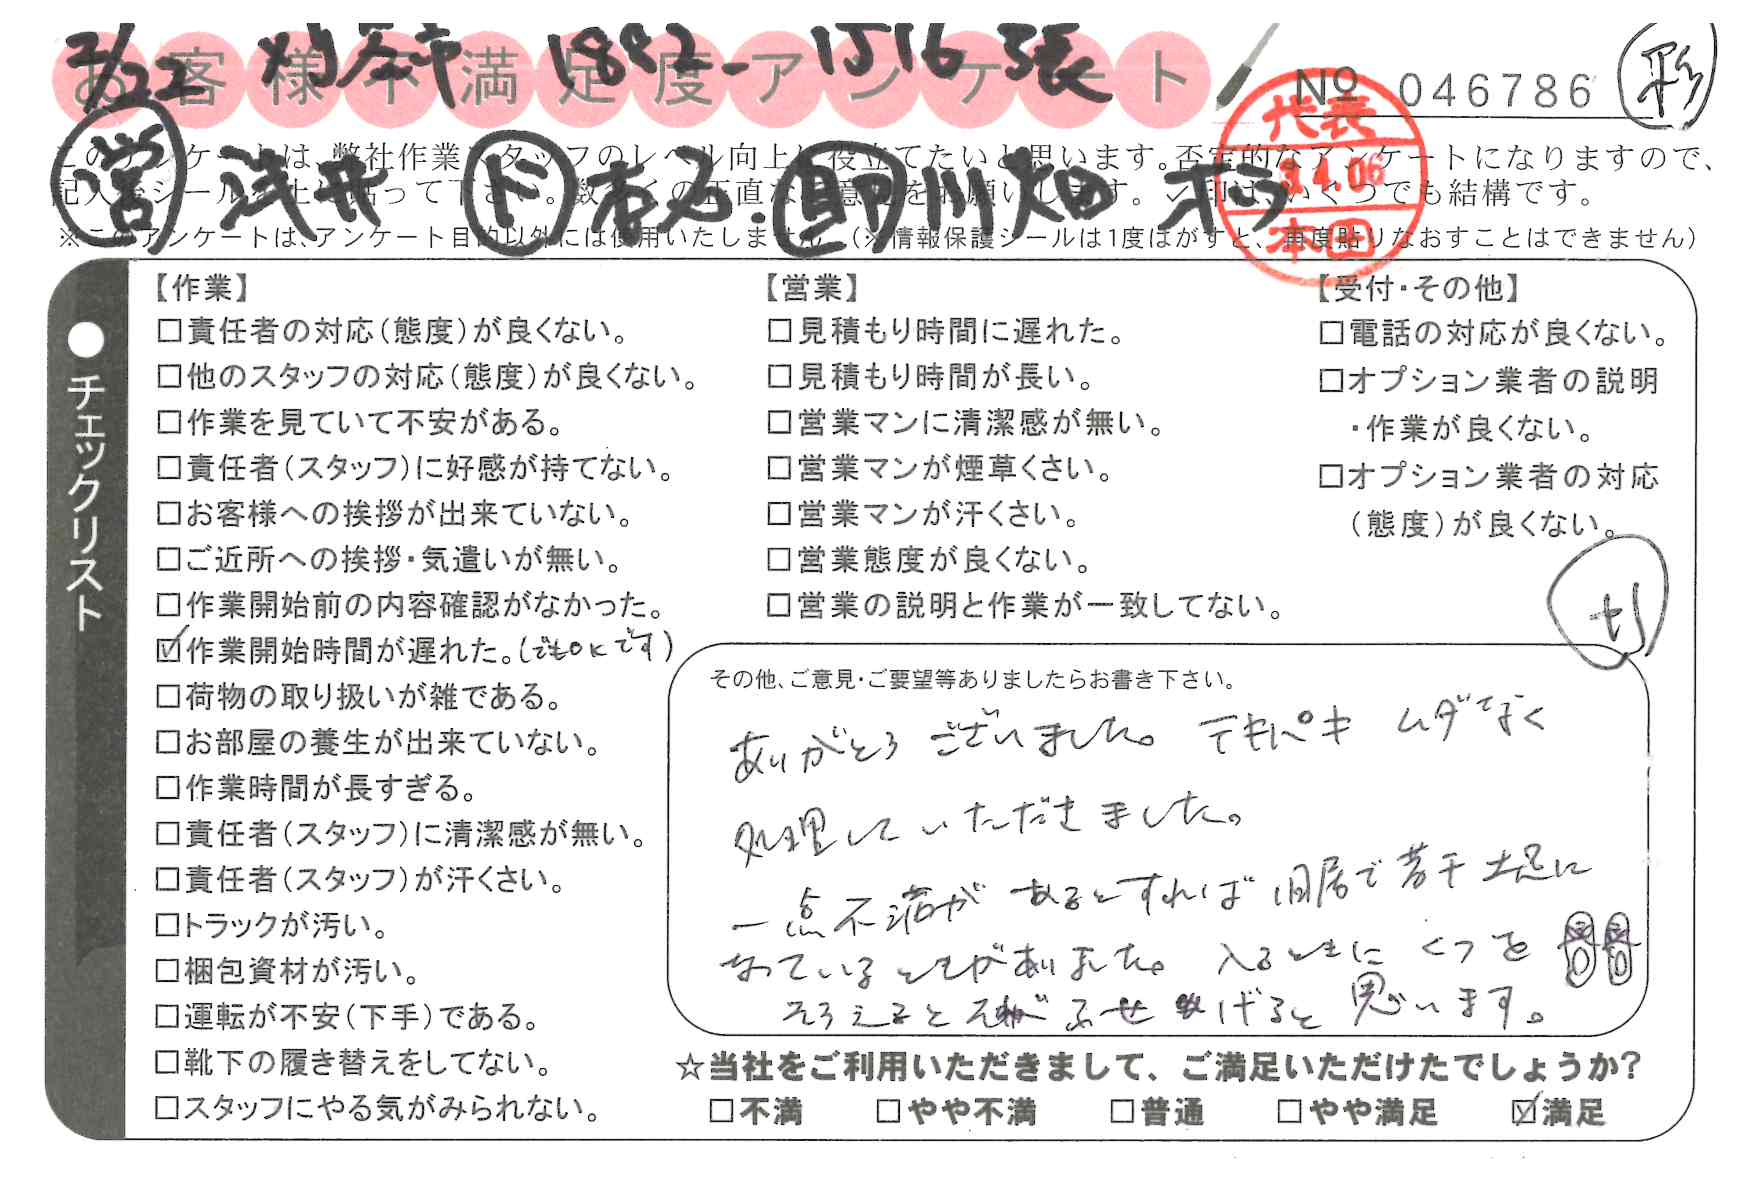 3/22 刈谷市 1882-1516 3張
お客様不満足度アンケート
No 046786
このアンケートは、弊社作業スタッフのレベル向上に役立てたいと思います。否定的なアンケートになりますので、
記入後シールを上に貼って下さい。数多くの正直なご意見をお願いします。✓印は、いくつでも結構です。
※このアンケートは、アンケート目的以外には使用いたしません。(※情報保護シールは1度はがすと、再度貼りなおすことはできません)
営 浅井 ド 本石.即 川畑
代表
4.06
本田
●チェックリスト
【作業】
□責任者の対応(態度)が良くない。
□他のスタッフの対応(態度)が良くない。
□作業を見ていて不安がある。
□責任者(スタッフ)に好感が持てない。
□お客様への挨拶が出来ていない。
□ご近所への挨拶・気遣いが無い。
□作業開始前の内容確認がなかった。
☑作業開始時間が遅れた。(でもOKです)
□荷物の取り扱いが雑である。
□お部屋の養生が出来ていない。
□作業時間が長すぎる。
□責任者(スタッフ)に清潔感が無い。
□責任者(スタッフ)が汗くさい。
□トラックが汚い。
□梱包資材が汚い。
□運転が不安(下手)である。
□靴下の履き替えをしてない。
□スタッフにやる気がみられない。
【営業】
□見積もり時間に遅れた。
□見積もり時間が長い。
□営業マンに清潔感が無い。
□営業マンが煙草くさい。
□営業マンが汗くさい。
□営業態度が良くない。
□営業の説明と作業が一致してない。
【受付・その他】
□電話の対応が良くない。
□オプション業者の説明
・作業が良くない。
□オプション業者の対応
(態度)が良くない。
その他、ご意見・ご要望等ありましたらお書き下さい。
ありがとうございました。テキパキ ムダなく
処理していただきました。
一点不満があるとすれば旧居で若干土足に
なっているときがありました。入るときにくつを
そろえると それがふせげると思います。
☆当社をご利用いただきまして、ご満足いただけたでしょうか?
□不満 □やや不満 □普通 □やや満足 ☑満足